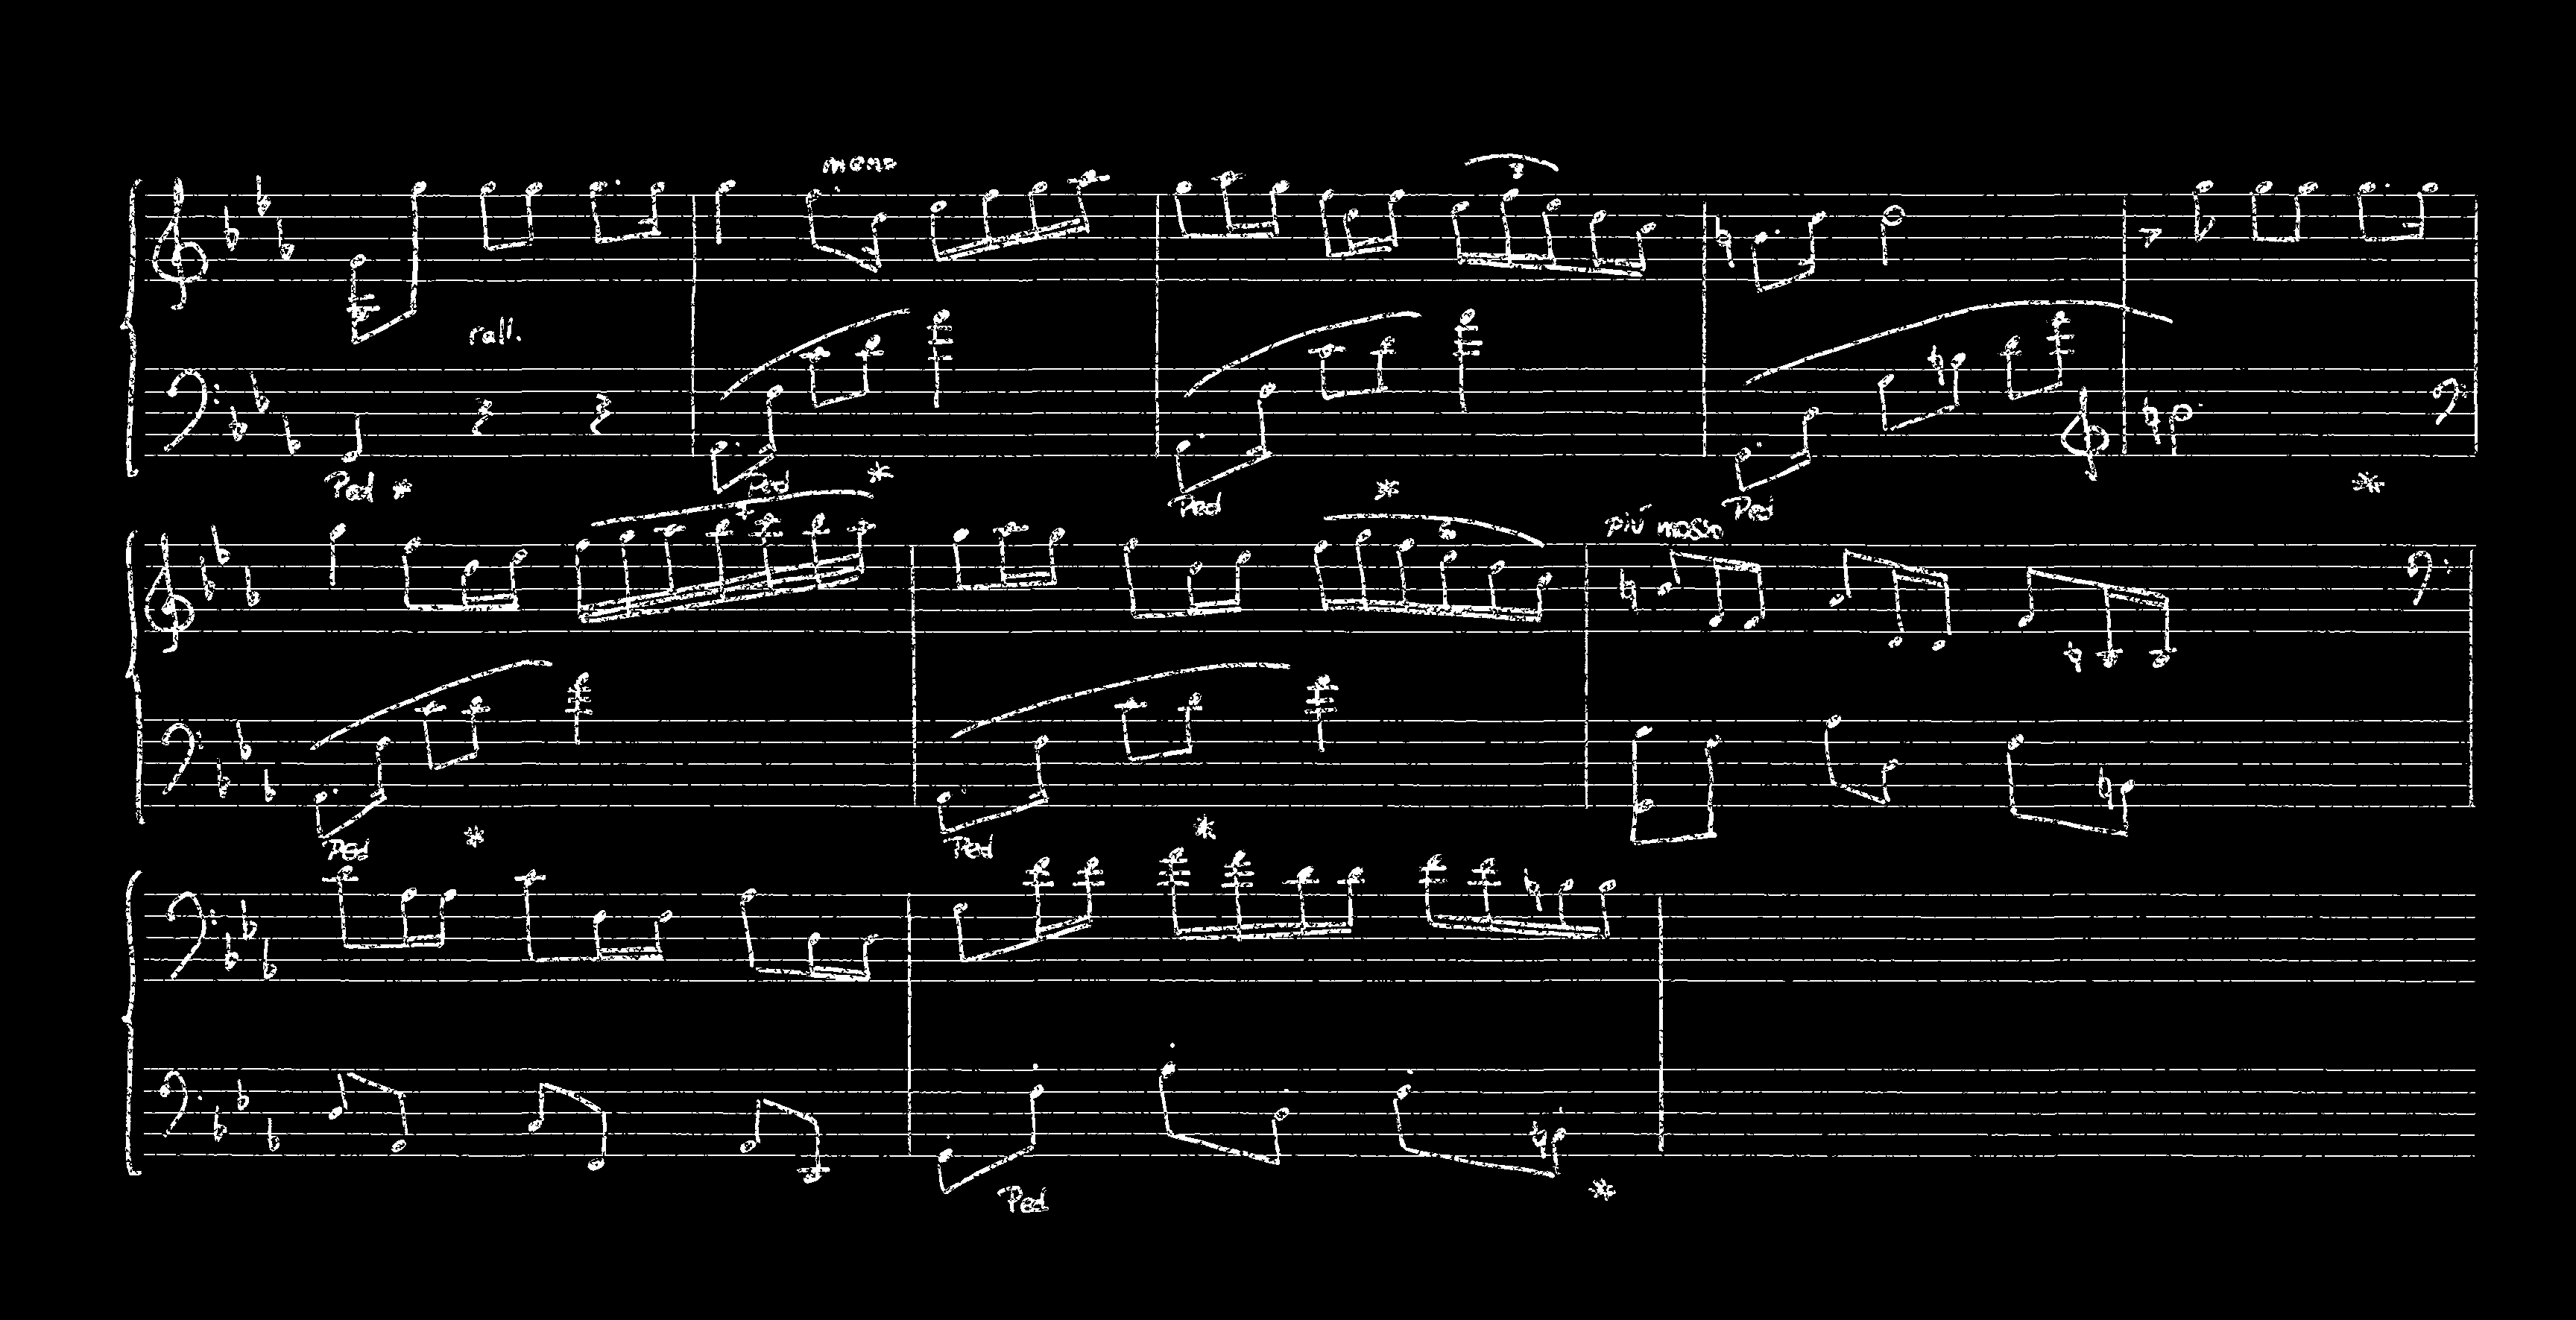 meno
3
rall.
Ped * Ped * Ped * Ped *
7
6
più mosso
Ped * Ped *
Ped *